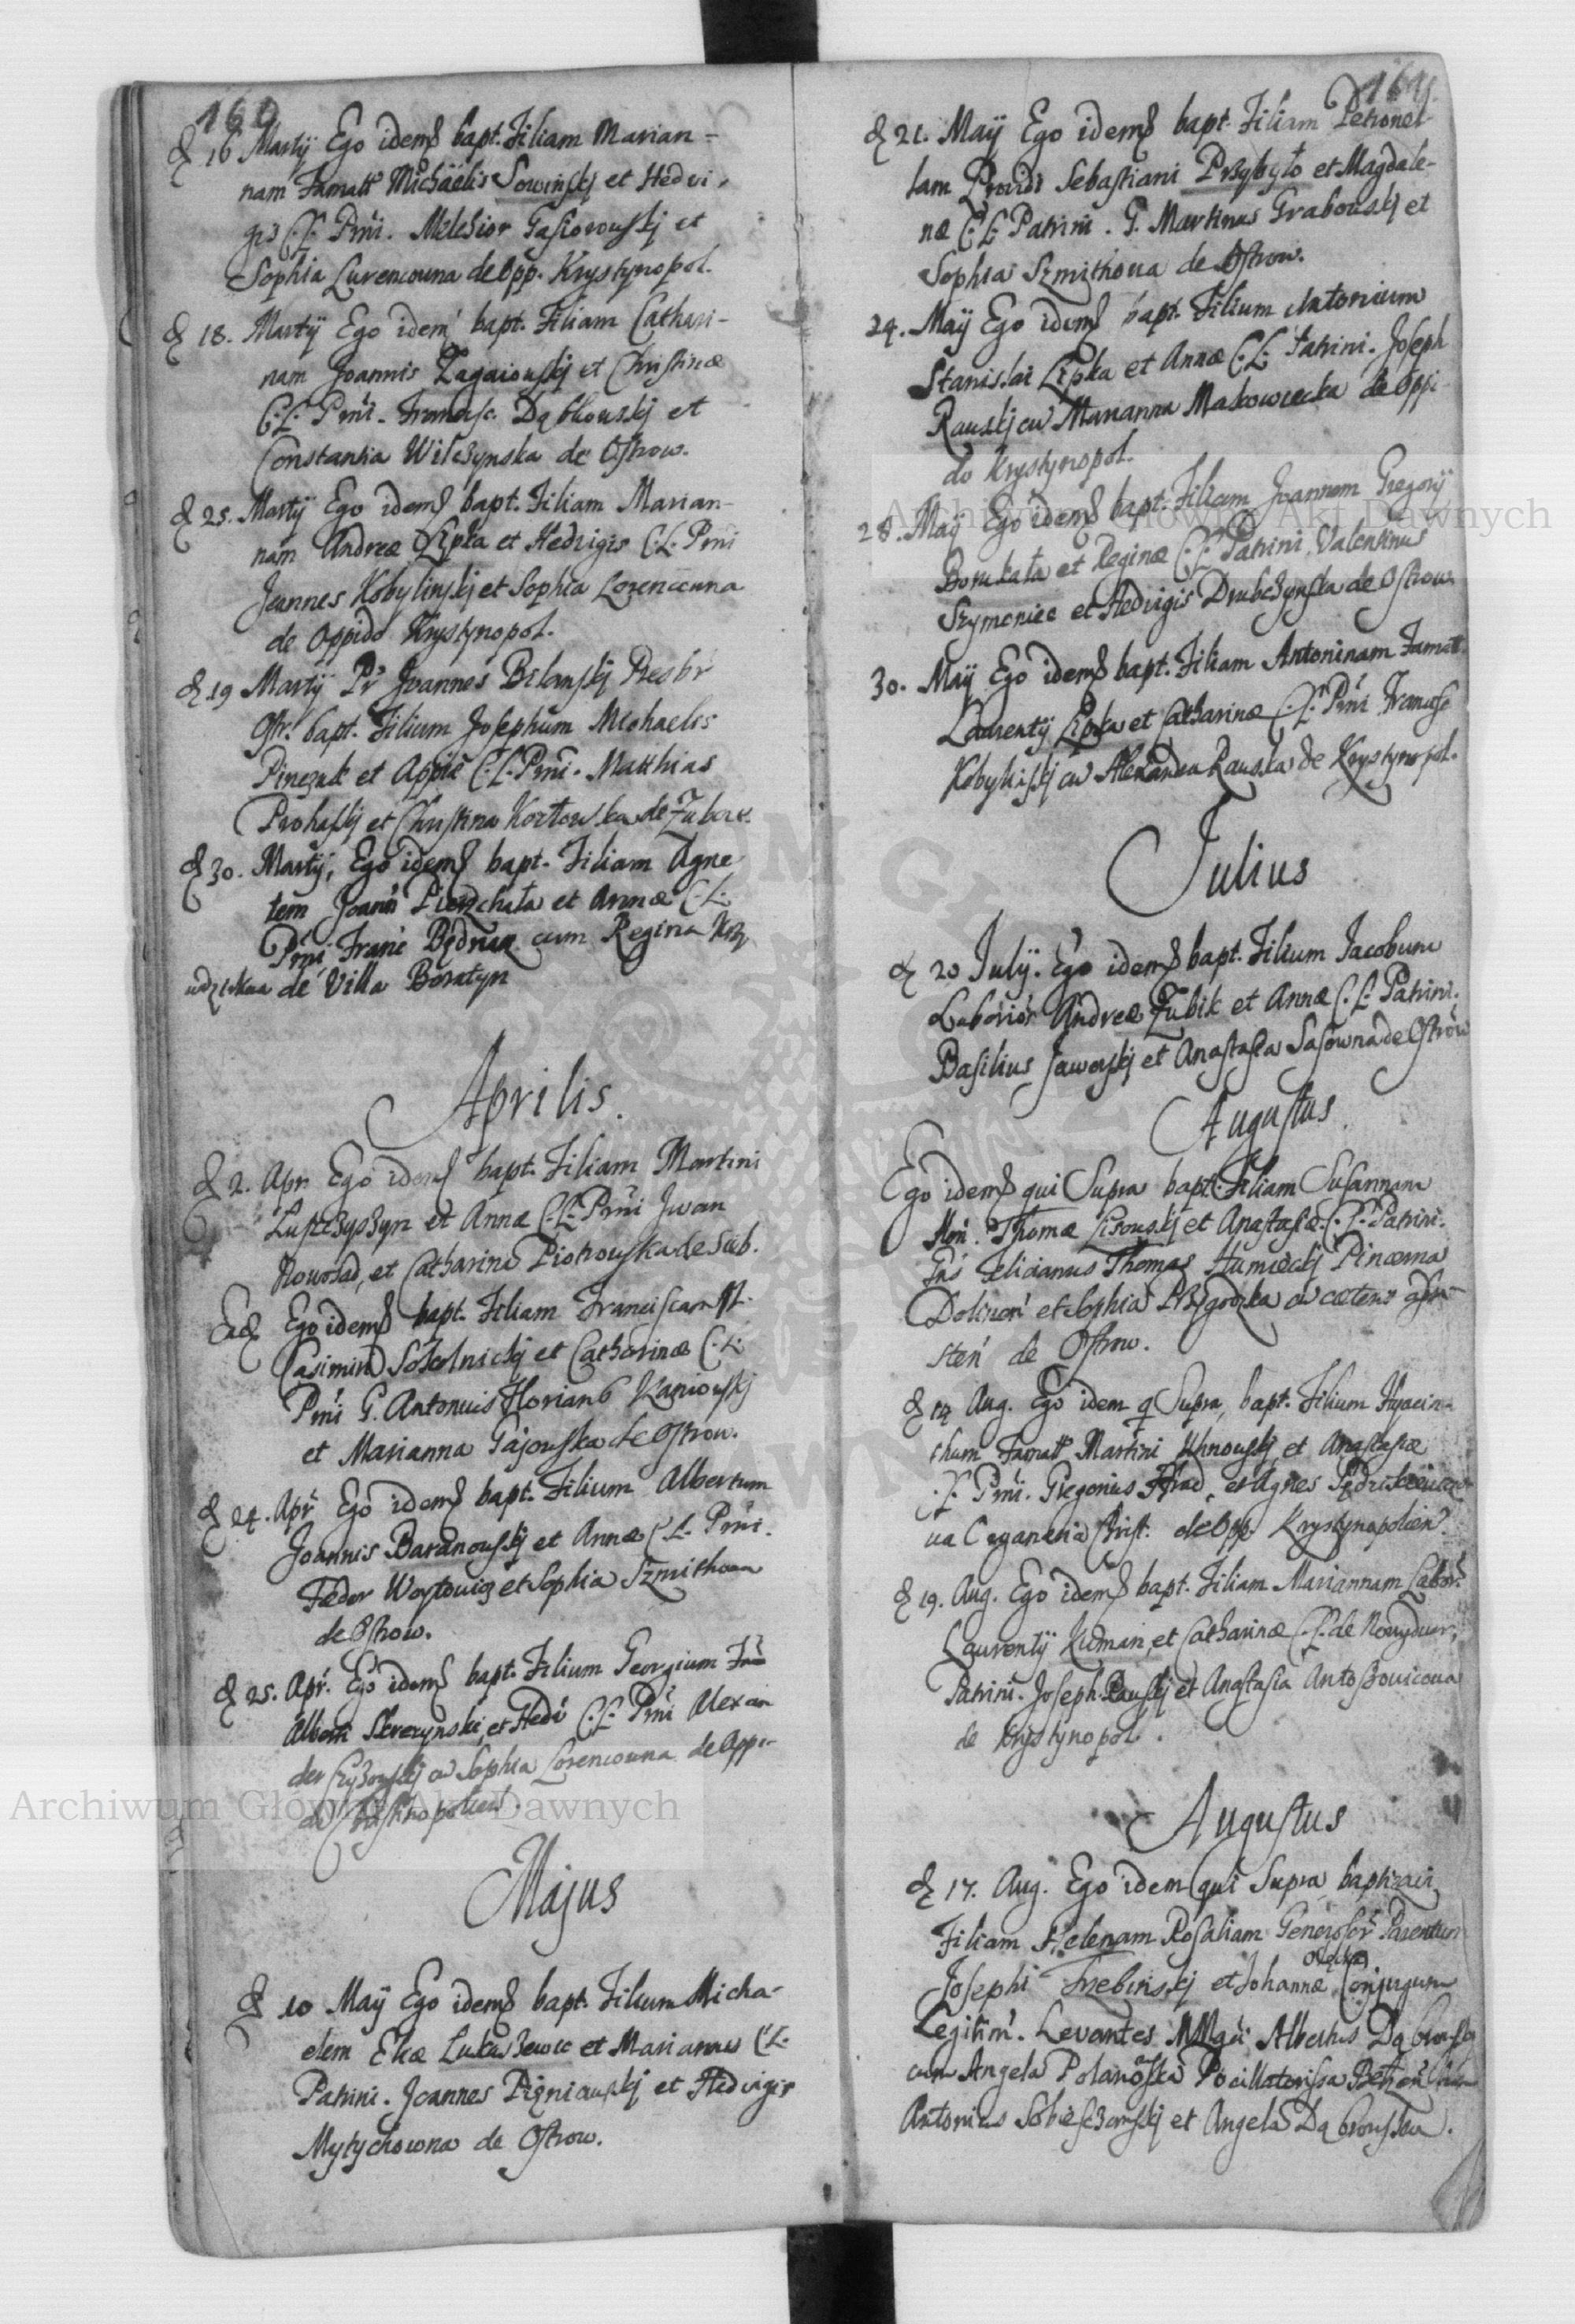 160
d 16 Martij Ego idem bapt. Filiam Marian-
nam Famatt Michaelis Sowinskj et Hedvi-
gis C.L. Prni. Melchior Gasiorowskj et
Sophia Lurencowna de Opp. Krystynopol.
d 18. Martij Ego idem bapt. Filiam Cathari-
nam Joannis Zagaiouskj et Christinæ
C.L. Prni. Francisc. Dąbkouskj et
Constantia Wilczynska de Ostrow.
d 25. Martij Ego idem bapt. Filiam Marian-
nam Andreæ Lipka et Hedvigis C.L. Prni
Joannes Kobylinskj et Sophia Lorencowna
de Oppido Krystynopol.
d 19 Martij Pr Joannes Bilanskj Presbr
Ostr. bapt. Filium Josephum Michaelis
Pinczuk et Appiæ C.L. Prni. Matthias
Prohaskj et Christina Koztowska de
d 30. Martij, Ego idem bapt. Filiam Agne
tem Joann Pierzchała et Annæ C.L.
Prni Franc Będnarz cum Regina
de Villa Boratyn
Aprilis.
d 2. Apr. Ego idem bapt. Filiam Martini
et Annæ C.L. Prni Iwan
Nowosad, et Catharina Piotrowska de Sieb.
Ead Ego idem bapt. Filiam Franciscam
Casimiri Sokolnickj et Catharinæ C.L.
Prni G. Antonius Florianus Kaniowskj
et Marianna Gajowska de Ostrow.
d 24. Apr Ego idem bapt. Filium Albertum
Joannis Baranouskj et Annæ C.L. Prni.
Fædor Woytowicz et Sophia Szmithowa
de Ostrow.
d 25. Apr. Ego idem bapt. Filium Georgium
Alberti Skrezynski, et Hedv C.L. Prni Alexan
der et Sophia Lorencowna de Oppi-
do
Majus
d 10 Maij Ego idem bapt. Filium Micha-
elem Eliæ Lukaszewic et Mariannæ C.L.
Patrini. Joannes Pizniauskj et Hedvigis
Mytychowna de Ostrow.
161
d 21. Maij Ego idem bapt. Filiam Petronel-
lam Providi Sebastiani Przybyło et Magdale-
næ C.L. Patrini. G. Martinus Grabouskj et
Sophia Szmithowa de Ostrow.
24. Maij Ego idem bapt. Filium Antonium
Stanislai Lipka et Annæ C.L. Patrini. Joseph
Rauskj cu Marianna Makowiecka de Oppi-
do Krystynopol.
28. Maij Ego idem bapt. Filium Joannem Gregorij
et Reginæ C.L. Patrini. Valentinus
Szymoniec et Hedvigis Drubczynska de Ostrow
30. Maij Ego idem bapt. Filiam Antoninam Famatt
Laurentij Lipka et Catharinæ C.L. Prni Francisc
Kobylinskj cu Alexandra Rauska de Krystynopol.
Julius
d 20 Julij. Ego idem bapt. Filium Jacobum
Laborios Andreæ Zubik et Annæ C.L. Patrini.
Basilius Jaworskj et Anastasia Sasowna de Ostrow
Augustus
Ego idem qui Supra bapt. Filiam Susannam
Thomæ Lisouskj et Anastasiæ C.L. Patrini.
Felicianus Thomas Humieckj Pincerna
et Sophia Przygodzka cu cæteris
de Ostrow.
d 14 Aug. Ego idem q Supra, bapt. Filium Hyacin-
thum Famatt Martini Uhnouskj, et Anastasiæ
C.L. Prni. Gregorius et Agnes
de Opp. Krystynopolien.
d 19. Aug. Ego idem bapt. Filiam Mariannam Labor
Laurentij Kuman, et Catharinæ C.L. de Nowydwor,
Patrini. Joseph Rauskj et Anastasia Antoszouicowa
de Krystynopol.
Augustus
d 17. Aug. Ego idem qui Supra baptizavi
Filiam Helenam Rosaliam Generosor Parentum
Josephi Trebinskj et Johannæ Conjugum
Legitim. Levantes MMgci Albertus Dąbrouskj
cum Angela Polanoska Pocillatorissa
Antonius Sobieszczanskj et Angela Dąbrouska.
Archiwum Główne Akt Dawnych
Archiwum Główne Akt Dawnych